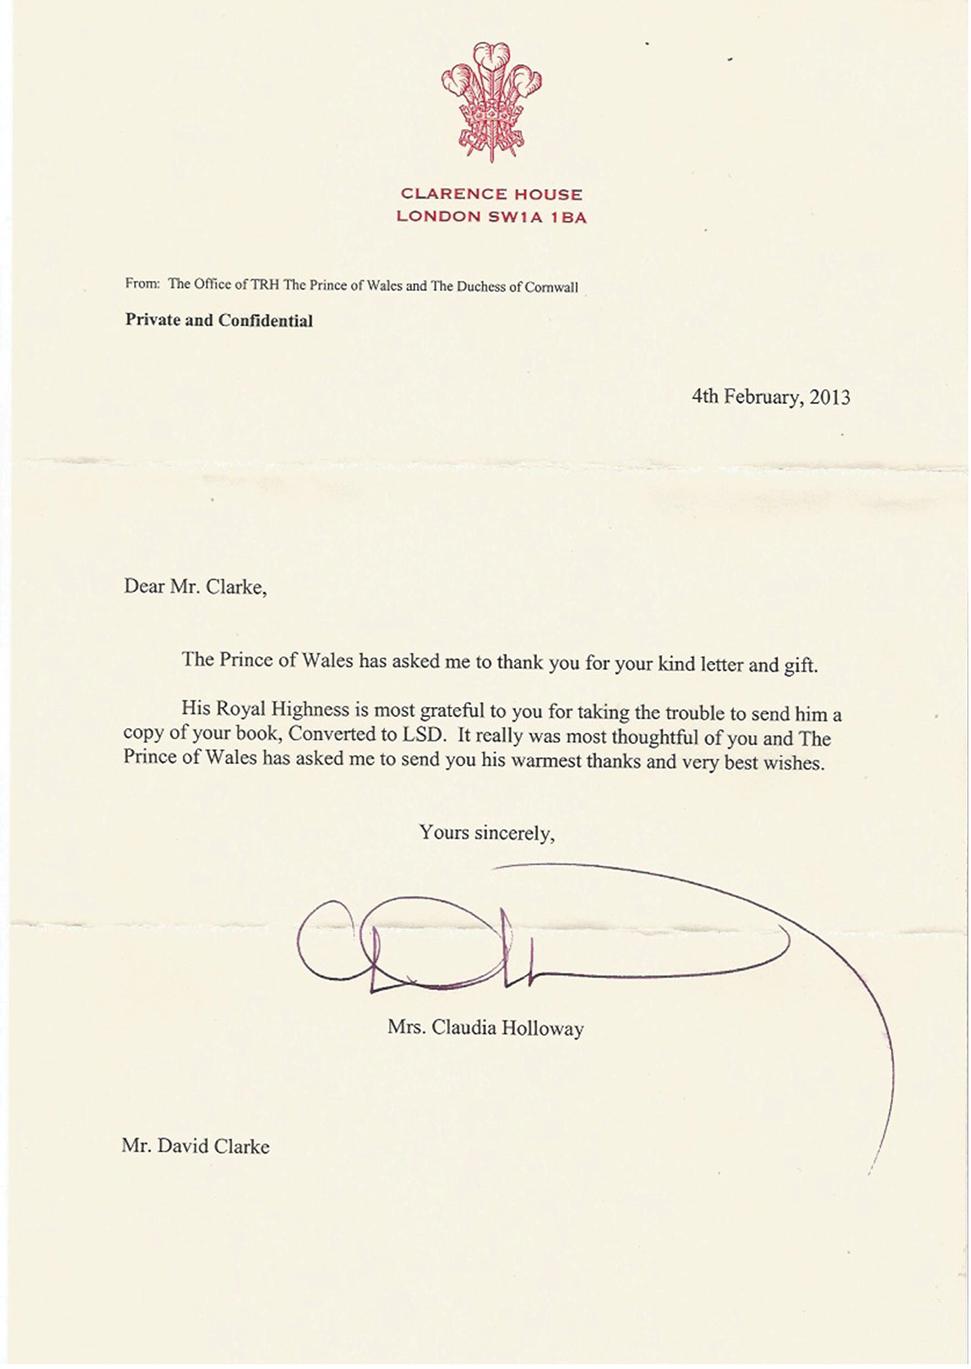 CLARENCE HOUSE
LONDON SW1A 1BA
From: The Office of TRH The Prince of Wales and The Duchess of Cornwall
Private and Confidential
4th February, 2013
Dear Mr. Clarke,
The Prince of Wales has asked me to thank you for your kind letter and gift.
His Royal Highness is most grateful to you for taking the trouble to send him a
copy of your book, Converted to LSD. It really was most thoughtful of you and The
Prince of Wales has asked me to send you his warmest thanks and very best wishes.
Yours sincerely,
Mrs. Claudia Holloway
Mr. David Clarke